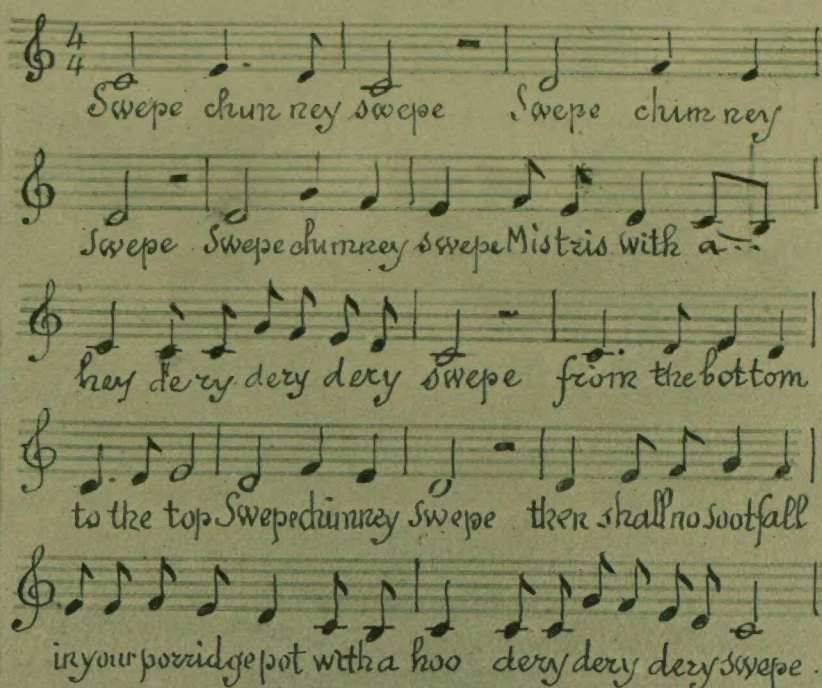 4
4
Swepe chun ney swepe Swepe chim ney
Swepe Swepe chimney swepe Mistris with a
hey de ry dery dery swepe from the bottom
to the top Swepe chimney swepe then shall no soot fall
in your porridge pot with a hoo dery dery dery swepe.